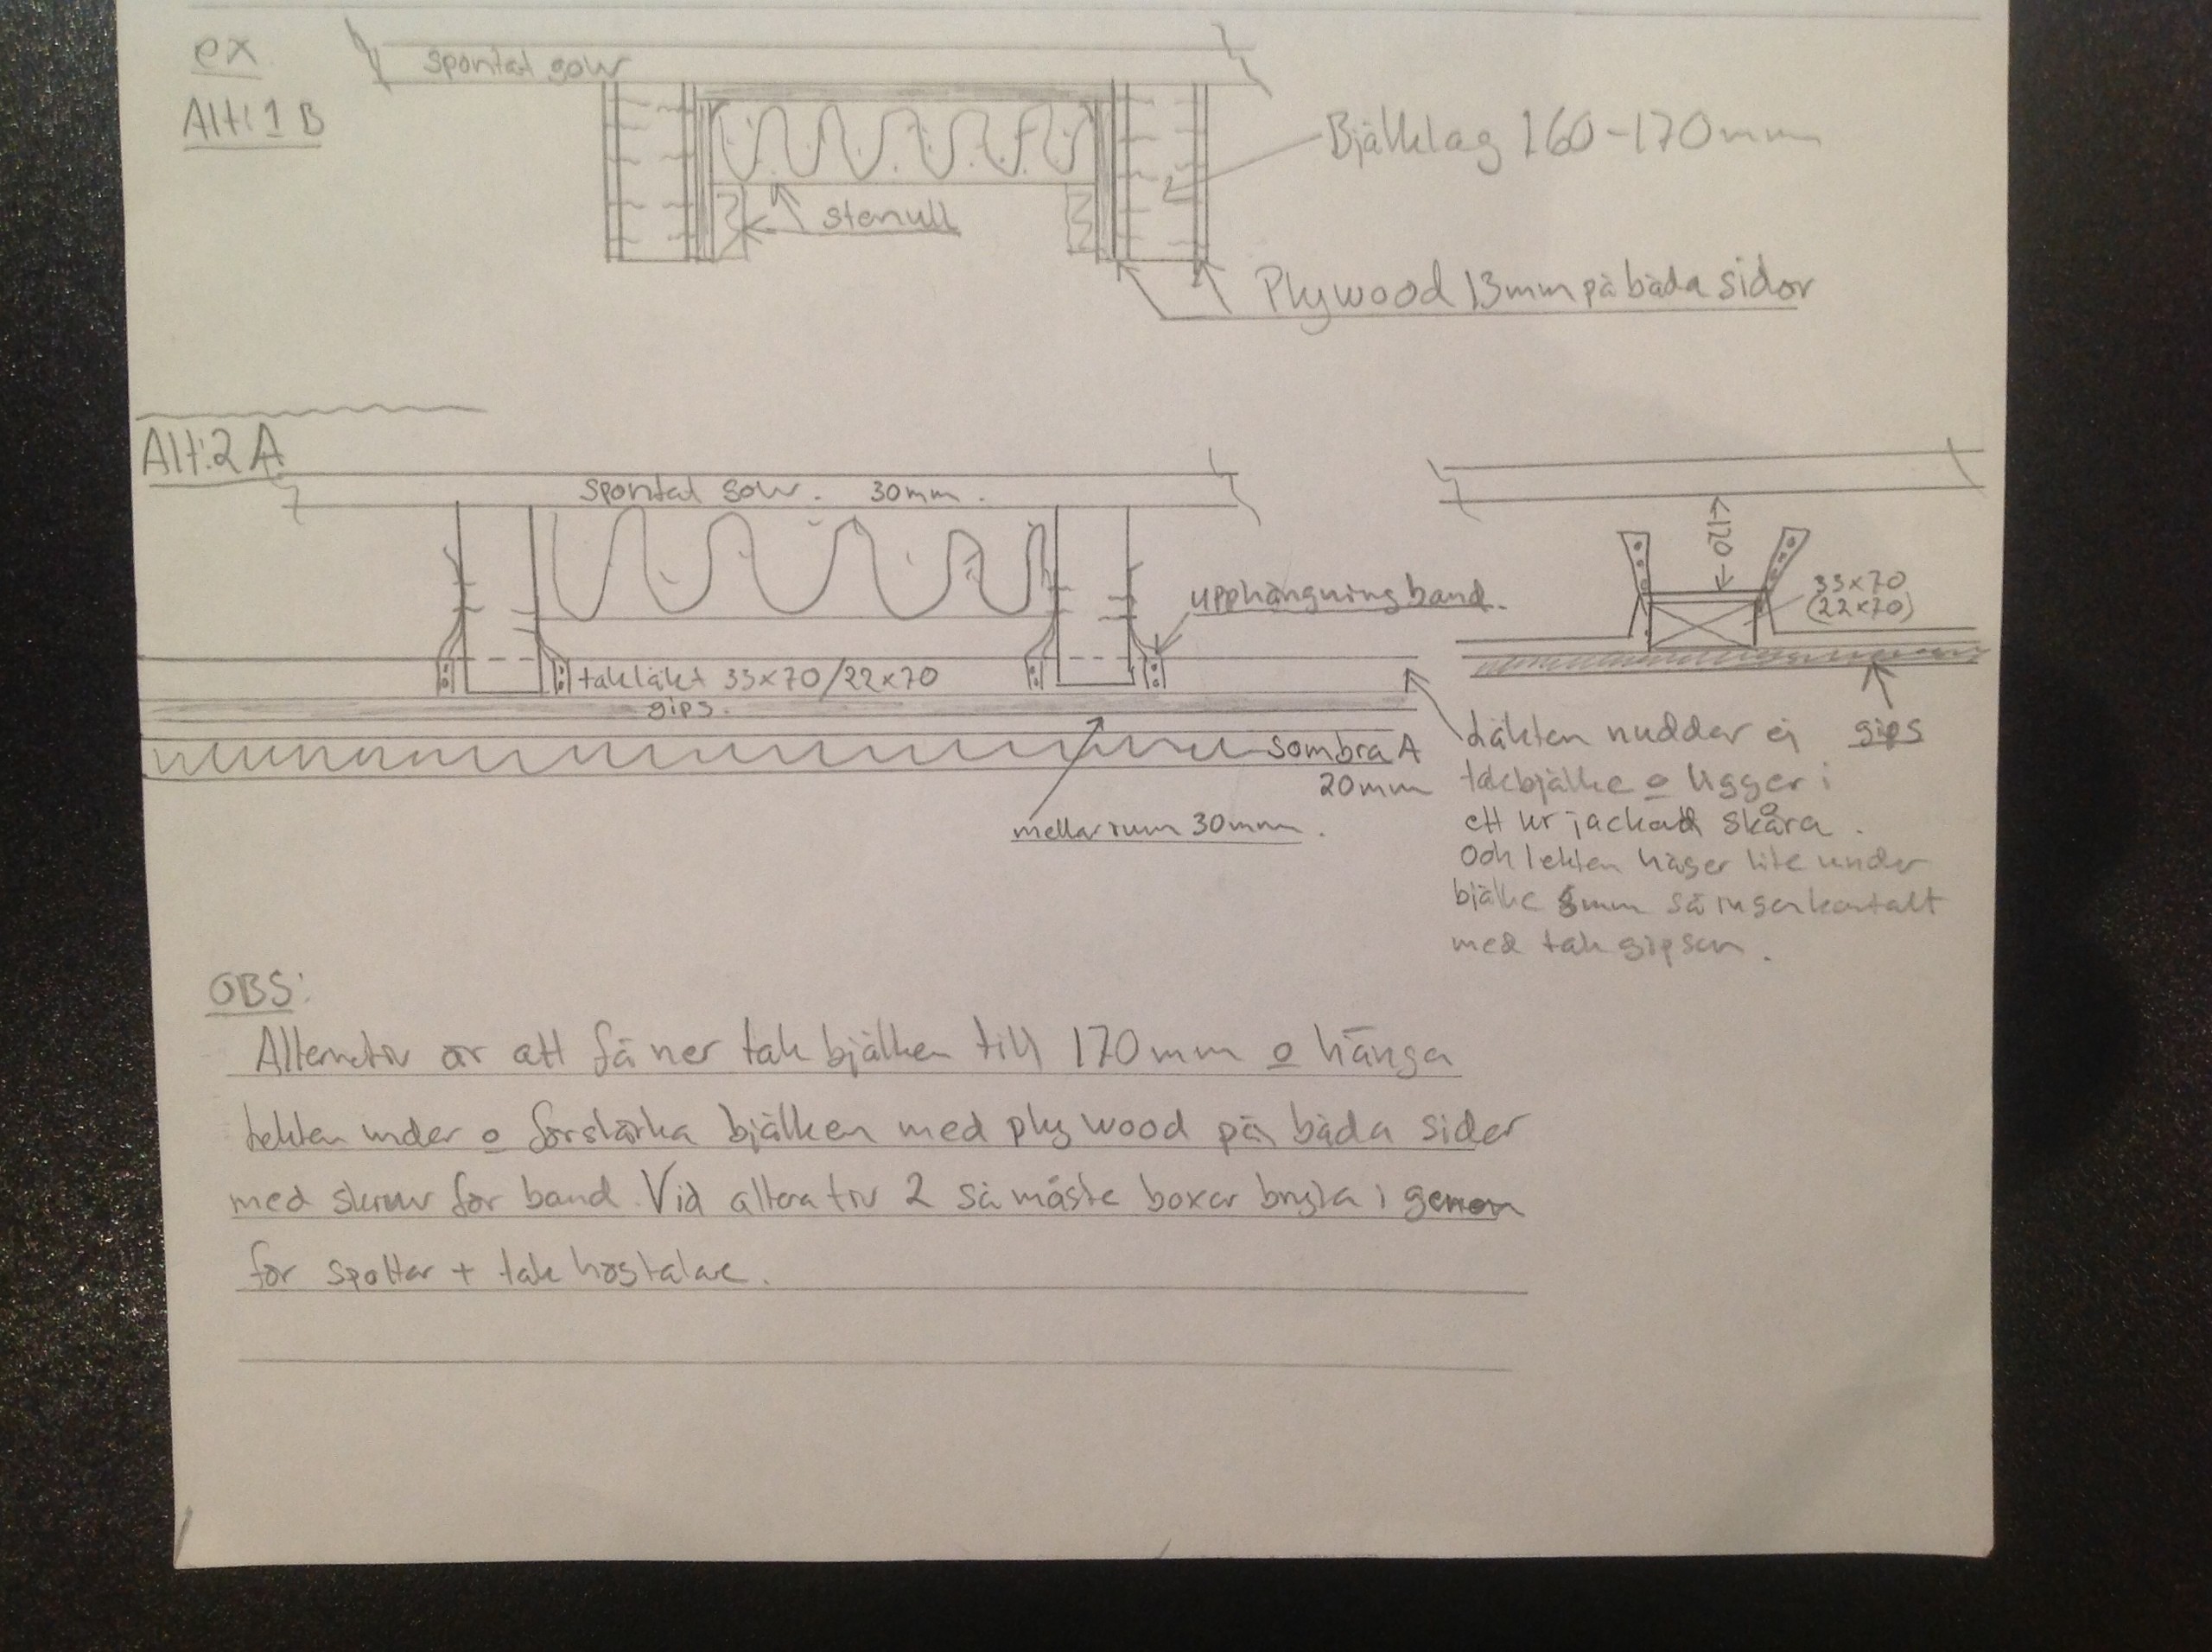 ex
Alt: 1 B
spontat golv
Bjälklag 160-170mm
stenull
Plywood 13mm på båda sidor
Alt: 2 A
spontat golv. 30mm.
120
upphängningsband.
33x70
(22x70)
takläkt 33x70/22x70
gips.
sombra A
20mm
mellarrum 30mm.
gips
Läkten nuddar ej
takbjälke o ligger i
ett urjackad skåra.
Och lekten häger lite under
bjälke 5mm så ingen kontakt
med tak gipsen.
OBS:
Alternativ är att få ner tak bjälken till 170mm o hänga
lekten under o förstärka bjälken med plywood på båda sidor
med skruv för band. Vid alterativ 2 så måste boxar bryta igenom
för spottar + tak högtalare.